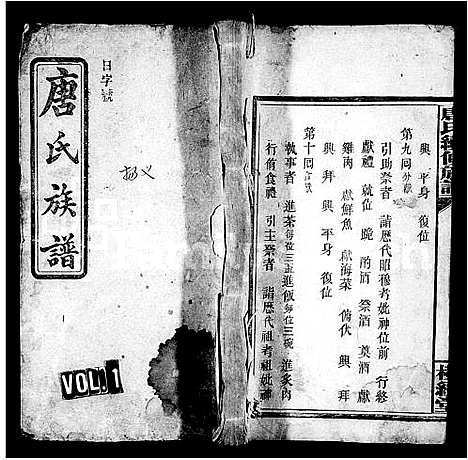 唐氏族譜
日字號
VOL.1
興 平身 復位
第九同分獻
引助祭者 詣歷代昭穆考妣神位前 行終
獻禮 就位 跪 酌酒 祭酒 奠酒 獻
雞肉 獻鮮魚 獻海菜 俯伏 興 拜
興 拜 興 平身 復位
第十同
執事者 進茶每位三盃進飯每位三碗 進炙肉
行侑食禮 引主祭者 詣歷代祖考祖妣神